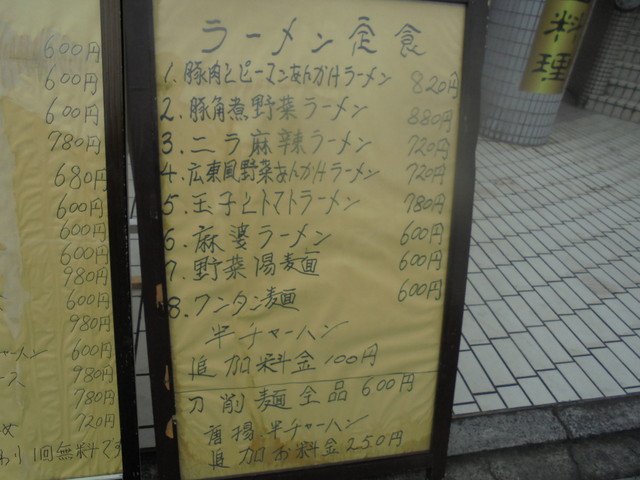 600円
600円
600円
780円
680円
600円
600円
600円
980円
600円
980円
600円
980円
780円
720円
1回無料です
ラーメン定食
1.豚肉とピーマンあんかけラーメン 820円
2.豚角煮野菜ラーメン 880円
3.ニラ麻辣ラーメン 720円
4.広東風野菜あんかけラーメン 720円
5.玉子とトマトラーメン 780円
6.麻婆ラーメン 600円
7.野菜湯麺 600円
8.ワンタン麺 600円
半チャーハン
追加料金100円
刀削麺全品600円
唐揚半チャーハン
追加お料金250円
料理